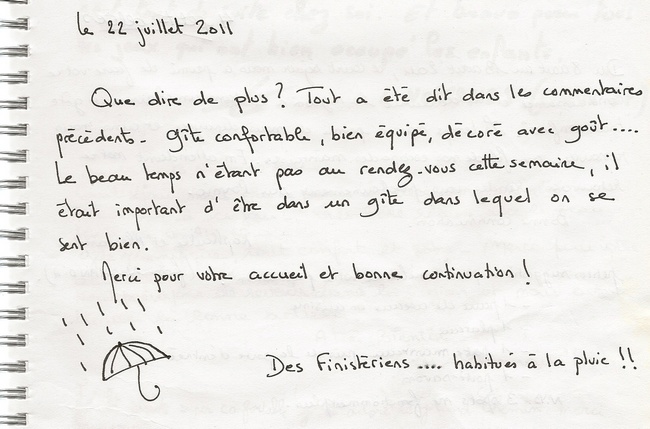 le 22 juillet 2011
Que dire de plus? Tout a été dit dans les commentaires
précédents. Gîte confortable, bien équipé, décoré avec goût....
Le beau temps n'étant pas au rendez-vous cette semaine, il
était important d'être dans un gîte dans lequel on se
sent bien.
Merci pour votre accueil et bonne continuation!
Des Finistériens .... habitués à la pluie !!